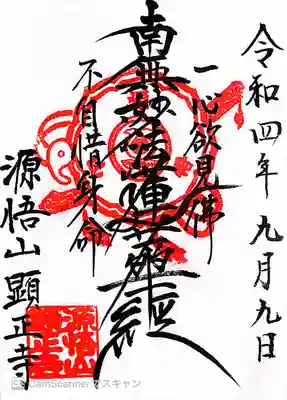 令和四年九月九日
一心欲見佛
南無妙法蓮華經
不自惜身命
源悟山顕正寺
CamScanner でスキャン